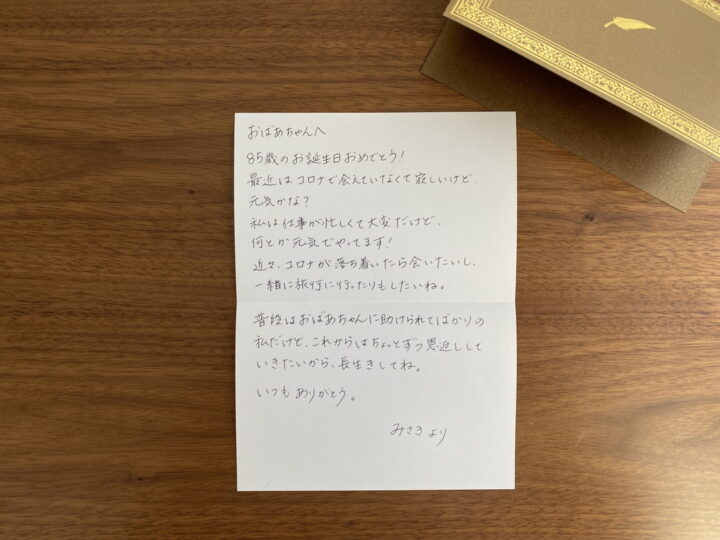 おばあちゃんへ
85歳のお誕生日おめでとう!
最近はコロナで会えていなくて寂しいけど、
元気かな?
私は仕事が忙しくて大変だけど、
何とか元気でやってます!
近々、コロナが落ち着いたら会いたいし、
一緒に旅行に行ったりもしたいね。
普段はおばあちゃんに助けられてばかりの
私だけど、これからはちょっとずつ恩返しして
いきたいから、長生きしてね。
いつもありがとう。
みさきより